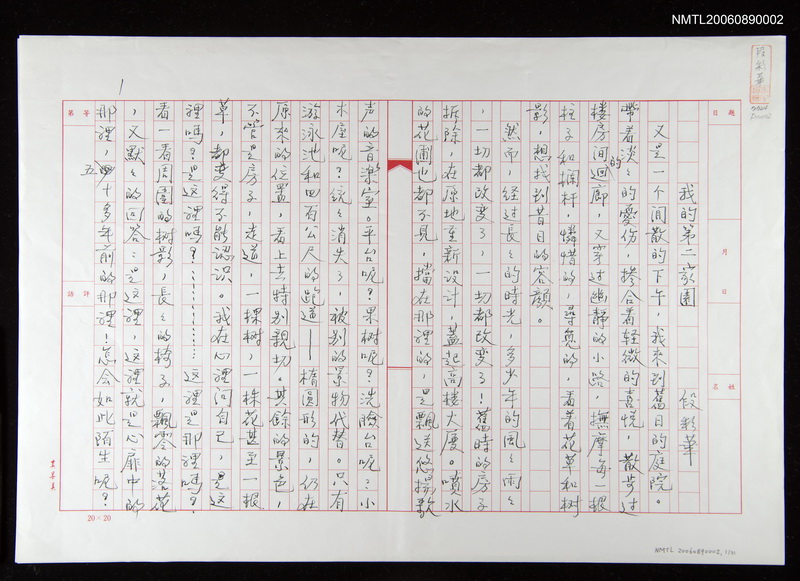 NMTL20060890002
段彩華
題目
月
日
姓名
我的第二家園
段彩華
又是一个閒散的下午，我來到舊日的庭院。
帶着淡々的憂伤，摻合着輕微的喜悅，散步过
楼房间的迴廊，又穿过幽静的小路，撫摩每一根
柱子和攔杆，憐惜的，尋覓的，看着花草和树
影，想找到昔日的容顏。
然而，經过長々的時光，多少年的風々雨々
，一切都改变了，一切都改变了！舊時的房子
拆除，在原地重新設计，蓋起高樓大厦。噴水
的花圃也都不見，擋在那裡的，是飄送悠揚歌
声的音楽室。平台呢？果树呢？洗臉台呢？小
木屋呢？統々消失了，被别的景物代替。只有
游泳池和四百公尺的跑道——橢圓形的，仍在
原來的位置，看上去特别親切。其餘的景色，
不管是房子，走道，一棵树，一株花甚至一根
草，都变得不能認识。我在心裡问自己，是这
裡嗎？是这裡嗎？………………这裡是那裡嗎？
看一看周圍的树影，長々的椅子，飄零的落花
，又默々的回答：是这裡，这裡就是心扉中的
那裡，五十多年前的那裡！怎会如此陌生呢？
第
等
評語
20×20
1
NMTL 20060890002, 1/11